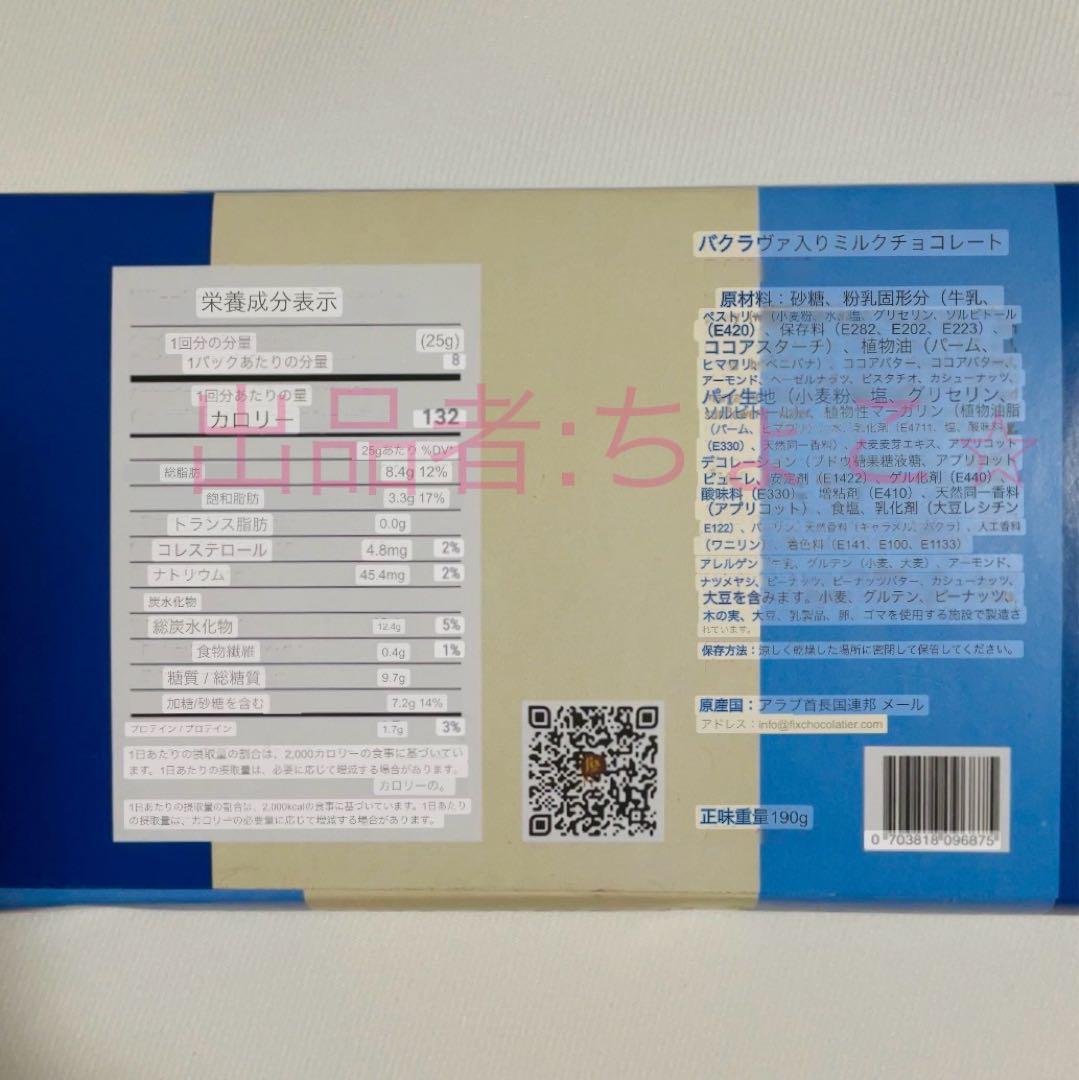 栄養成分表示
1回分の分量 (25g)
1パックあたりの分量 8
1回分あたりの量
カロリー 132
25gあたり %DV*
総脂肪 8.4g 12%
飽和脂肪 3.3g 17%
トランス脂肪 0.0g
コレステロール 4.8mg 2%
ナトリウム 45.4mg 2%
炭水化物
総炭水化物 12.4g 5%
食物繊維 0.4g 1%
糖質 / 総糖質 9.7g
加糖/砂糖を含む 7.2g 14%
プロテイン / プロテイン 1.7g 3%
1日あたりの摂取量の割合は、2,000カロリーの食事に基づいてい
ます。1日あたりの摂取量は、必要に応じて増減する場合があります。
カロリーの。
1日あたりの摂取量の割合は、2,000kcalの食事に基づいています。1日あたり
の摂取量は、カロリーの必要量に応じて増減する場合があります。
出品者:ちょこ☆
バクラヴァ入りミルクチョコレート
原材料：砂糖、粉乳固形分（牛乳、
ペストリー（小麦粉、水、塩、グリセリン、ソルビトール
（E420）、保存料（E282、E202、E223）、
ココアスターチ）、植物油（パーム、
ヒマワリ、ベニバナ）、ココアバター、ココアバター、
アーモンド、ヘーゼルナッツ、ピスタチオ、カシューナッツ、
パイ生地（小麦粉、塩、グリセリン、
ソルビトール 植物性マーガリン（植物油脂
（パーム、ヒマワリ）、水、乳化剤（E4711、塩、酸味料
（E330）、天然同一香料）、大麦麦芽エキス、アプリコット
デコレーション（ブドウ糖果糖液糖、アプリコット
ピューレ、安定剤（E1422）、ゲル化剤（E440）、
酸味料（E330）、増粘剤（E410）、天然同一香料
（アプリコット）、食塩、乳化剤（大豆レシチン
E122）、バニリン、天然香料（キャラメル、バクラ）、人工香料
（ワニリン）、着色料（E141、E100、E1133）
アレルゲン 牛乳、グルテン（小麦、大麦）、アーモンド、
ナツメヤシ、ピーナッツ、ピーナッツバター、カシューナッツ、
大豆を含みます。小麦、グルテン、ピーナッツ、
木の実、大豆、乳製品、卵、ゴマを使用する施設で製造さ
れています。
保存方法：涼しく乾燥した場所に密閉して保管してください。
原産国：アラブ首長国連邦 メール
アドレス：info@fixchocolatier.com
正味重量190g
0 703818 096875